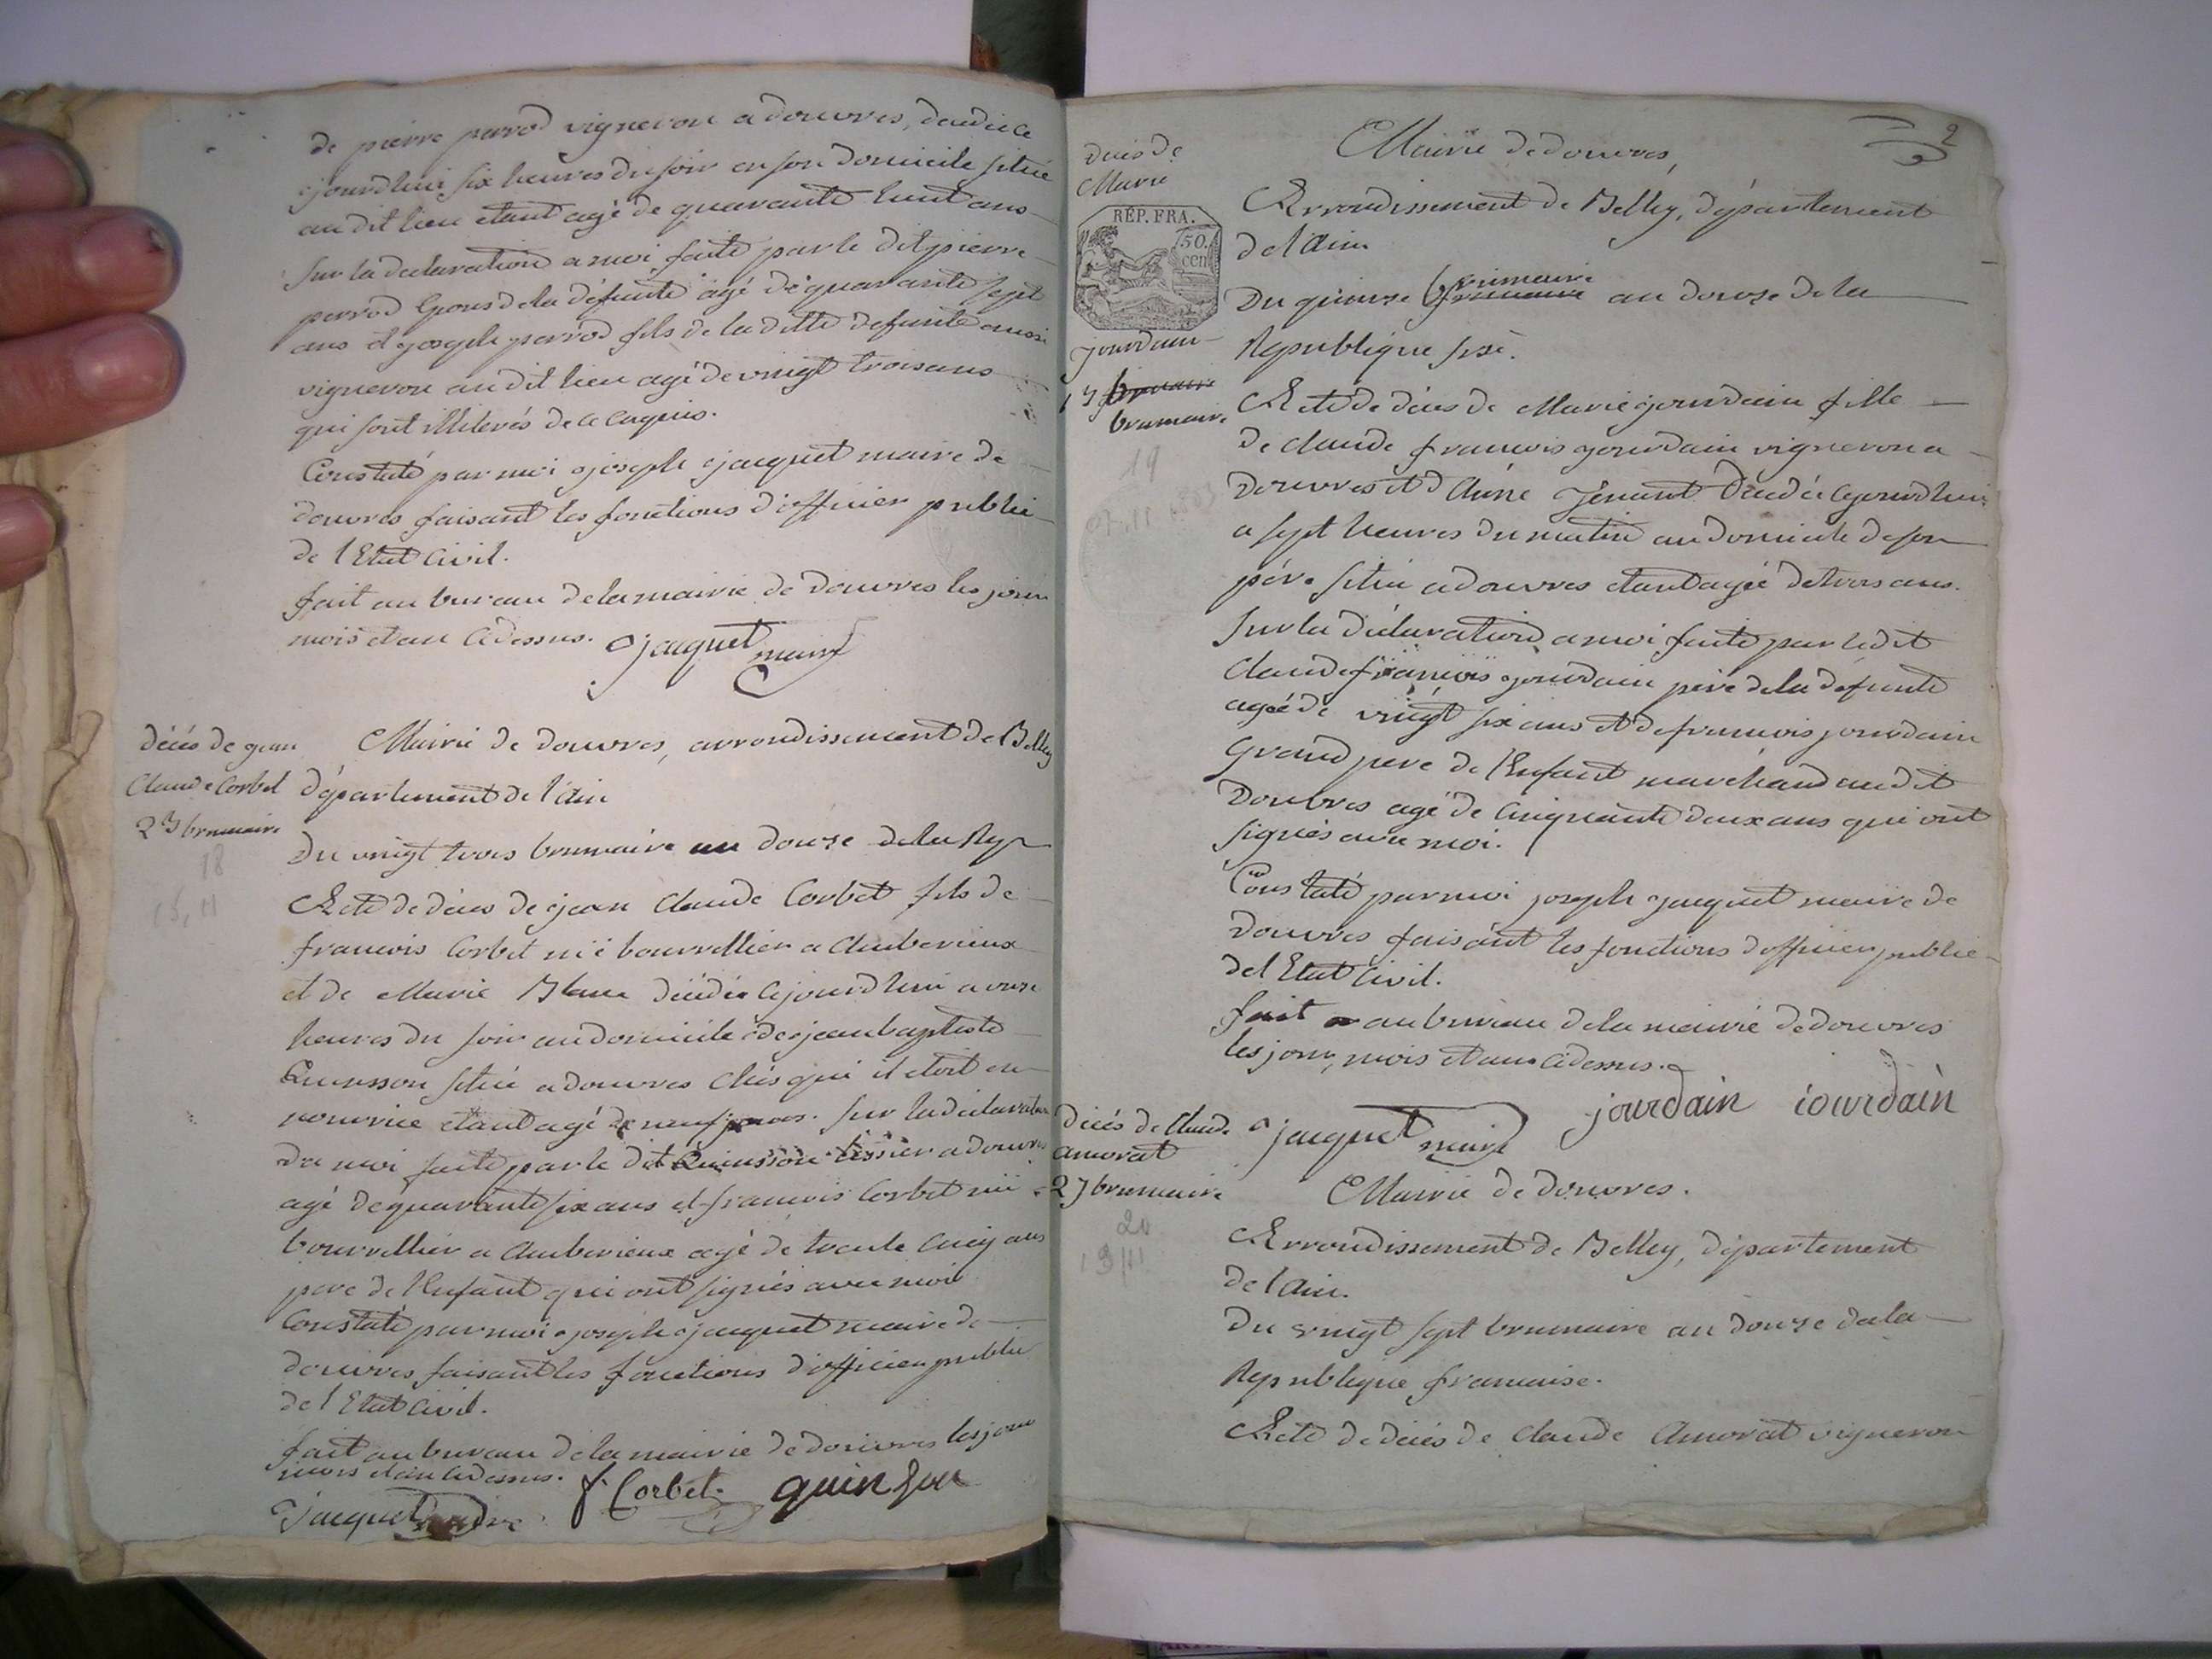 de pierre perrod vigneron a douvres, decedée ce
jourdhui six heures du soir en son domicile situé
au dit lieu etant agé de quarante huit ans
sur la declaration a moi faite par le dit pierre
perrod Epoux de la défunte agé de quarante sept
ans et joseph perrod fils de la ditte defunte aussi
vigneron au dit lieu agé de vingt trois ans
qui sont illiterés de ce enquis.
Constaté par moi joseph jacquet maire de
douvres faisant les fonctions d'officier public
de l'Etat Civil.
fait au bureau de la mairie de Douvres les jour
mois et an cidessus. jacquet maire
décés de jean
Claude Corbet
23 brumaire
18
15, 11
Mairie de douvres, arrondissement de Belley
département de l'ain
Du vingt trois brumaire an douze de la Rep
Acte de déces de jean Claude Corbet fils de
francois Corbet bourrellier a Amberieux
et de Marie Blanc décédé cejourdhui a onze
heures du soir au domicile de jean baptiste
Quinsson situé a douvres chés qui il etoit en
nourrice etant agé de neuf jours. sur la déclaration
da moi faite par le dit Quinsson tissier a douvres
agé de quarante six ans et francois Corbet
bourrellier a Amberieux agé de trente cinq ans
pere de l'Enfant qui ont signés avec moi
Constaté par moi joseph jacquet maire de
douvres faisant les fonctions d'officier public
de l'Etat Civil.
fait au bureau de la mairie de douvres les jour
mois et an cidessus. f. Corbet. quinson
jacquet maire
2
déces de
Marie
RÉP. FRA.
50.
cen
jourdain
brumaire
19
Mairie de douvres,
Arrondissement de Belley, département
de l'ain
Du quinze brumaire an douze de la
Republique frse.
Acte de déces de Marie jourdain fille
de claude francois jourdain vigneron a
Douvres et d'Aimé décédée cejourdhui
a sept heures du matin au domicile de son
pére situé a douvres etant agée de trois ans.
Sur la déclaration a moi faite par ledit
Claude francois jourdain père de la défunte
agée de vingt six ans et de francois jourdain
Grand pere de l'Enfant marchand au dit
Douvres agé de Cinquante deux ans qui ont
signés avec moi.
Constaté par moi joseph jacquet maire de
Douvres faisant les fonctions d'officier public
de l'Etat Civil.
fait au bureau de la mairie de douvres
les jour, mois et an cidessus.
jacquet maire jourdain iourdain
Décés de Claude
amorat
27 brumaire
20
19/11
Mairie de Douvres.
Arrondissement de Belley, département
de l'Ain.
Du vingt sept brumaire an douze de la
Republique francaise.
Acte de décés de Claude Amorat vigneron